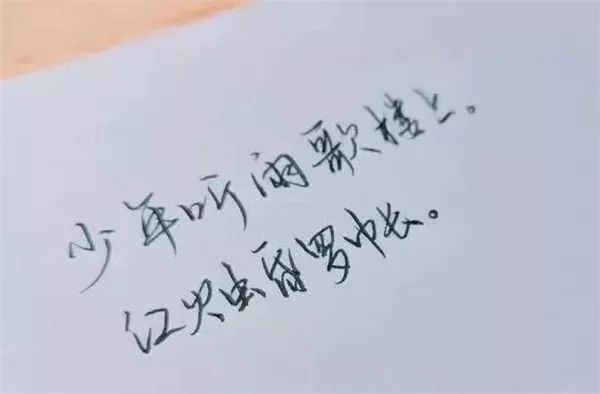 少年听雨歌楼上。
红烛昏罗帐。